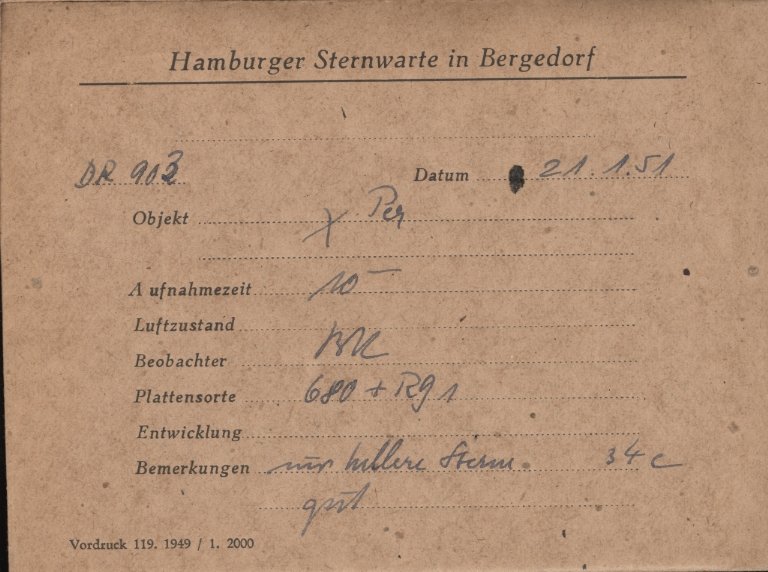 Hamburger Sternwarte in Bergedorf
DR 903 Datum 21.1.51
Objekt χ Per
Aufnahmezeit 10
Luftzustand
Beobachter
Plattensorte 680 + RG 1
Entwicklung
Bemerkungen nur hellere Sterne 34 c
gut
Vordruck 119. 1949 / 1. 2000